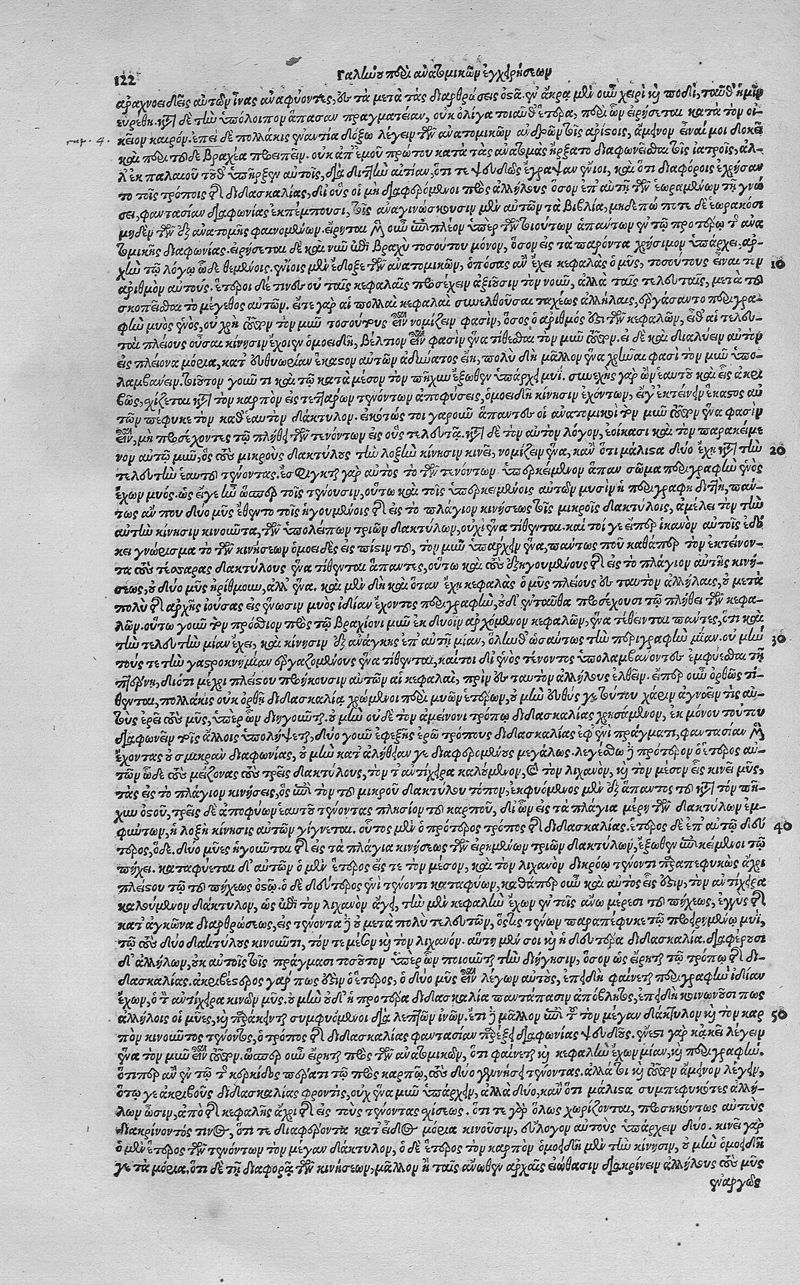 122 Γαλίωοῦ περὶ ἀνατομικῶν ἐγχειρήσεων
ἀραχνοειδεῖς αὐτῶν ἶνας ἀναφύοντες, ἐν τὰ μετὰ τὰς διαρθρώσεις ὀστᾶ. ἐν ἄκρᾳ μὲν οὖν χειρὶ καὶ ποδὶ, ταῦθ' ἡμῖν
εὑρέθη. κατὰ δὲ τὴν ὑπόλοιπον ἅπασαν πραγματείαν, οὐκ ὀλίγα τοιαῦθ' ἕτερα, περὶ ὧν εἰρήσεται κατὰ τὸν οἰ-
κεῖον καιρόν. ἐπεὶ δὲ πολλάκις ἐναντία δόξω λέγειν τῶν ἀνατομικῶν ἀνδρῶν τοῖς ἀρίστοις, ἄμεινον εἶναί μοι δοκεῖ
καὶ περὶ τοῦδε βραχέα προειπεῖν. οὐκ ἀπ' ἐμοῦ πρώτου κατὰ τὰς ἀνατομὰς ἤρξατο διαφωνεῖσθαι τοῖς ἰατροῖς, ἀλ-
λ' ἐκ παλαιοῦ τοῦθ' ὑπῆρξεν αὐτοῖς, διὰ διττὴν αἰτίαν, ὅτι τε ψευδῶς ἔγραψαν ἔνιοι, καὶ ὅτι διαφόροις ἐχρήσαν
το τοῖς τρόποις τῆς διδασκαλίας, δι' οὓς οἱ μὴ διαφερόμενοι πρὸς ἀλλήλους ὅσον ἐπ' αὐτῇ τῇ τῶν ἑωραμένων τῇ γνώ
σει, φαντασίαν διαφωνίας ἐκπέμπουσι, τοῖς ἀναγινώσκουσιν μὲν αὐτῶν τὰ βιβλία, μηδεπώποτε δὲ ἑωρακόσι
μηδὲν τῶν ἐξ ἀνατομῆς φαινομένων. εἴρηται μὲν οὖν ἐπὶ πλέον ὑπὲρ τῶν τοιούτων ἁπάντων ἐν τῷ προτέρῳ τῆς ἀνα
τομικῆς διαφωνίας. εἰρήσεται δὲ καὶ νῦν ἐπὶ βραχὺ τοσοῦτον μόνον, ὅσον εἰς τὰ παρόντα χρήσιμον ὑπάρχει. ἀρ-
χὴν τῷ λόγῳ ὧδε θεμένοις. ἐνίοις μὲν ἔδοξε τῶν ἀνατομικῶν, ὁπόσας ἂν ἔχει κεφαλὰς ὁ μῦς, τοσούτους εἶναι τὸν 10
ἀριθμὸν αὐτούς. ἕτεροι δέ τινες οὐ ταῖς κεφαλαῖς προσέχειν ἀξιοῦσιν τὸν νοῦν, ἀλλὰ ταῖς τελευταῖς, μετὰ τοῦ
σκοπεῖσθαι τὸ μέγεθος αὐτῶν. εἴτε γὰρ αἱ πολλαὶ κεφαλαὶ συνελθοῦσαι ταχέως ἀλλήλαις, εἰργάσαντο περιγρα-
φὴν μυὸς ἑνὸς, οὐ χρὴ διὰ τοῦτον τὸν μῦν τοσούτους εἶναι νομίζειν φασὶν, ὅσος ὁ ἀριθμός ἐστι τῶν κεφαλῶν, εἴθ' αἱ τελευ-
ταὶ πλείους οὖσαι κίνησιν ἔχοιεν ὁμοειδῆ, βέλτιον εἶναι φασὶν ἕνα τίθεσθαι τὸν μῦν. εἰ δὲ καὶ διαλύειν αὐτὸν
εἰς πλείονα μόρια, κατ' εὐθυωρίαν ἕκαστον αὐτῶν ἀδύνατος εἴη, πολὺ δὴ μᾶλλον ἕνα χρῆναι φασὶ τὸν μῦν ὑπο-
λαμβάνειν. τοιοῦτον γοῦν τι καὶ τῷ κατὰ μέσον τὸν πῆχυν ἔξωθεν ὑπάρχει μυί. συνεχὴς γὰρ ὢν ἑαυτῷ καὶ εἷς ἀκρι
βῶς, σχίζεται κατὰ τὸν καρπὸν εἰς τεττάρων τενόντων ἀποφύσεις, ὁμοειδῆ κίνησιν ἐχόντων, εἴγ' ἐκτείνειν ἕκαστος αὐ
τῶν πέφυκε τὸν καθ' ἑαυτὸν δάκτυλον. εἰκότως τοιγαροῦν ἅπαντες οἱ ἀνατομικοὶ τὸν μῦν ἕνα φασὶν
εἶναι, μὴ προσέχοντες τῷ πλήθει τῶν τενόντων εἰς οὓς τελευτᾷ. κατὰ δὲ τὸν αὐτὸν λόγον, ἐοίκασι καὶ τὸν παρακείμε
νον αὐτῷ μῦν, ὃς τοὺς μικροὺς δακτύλους τὴν λοξὴν κίνησιν κινεῖ, νομίζειν ἕνα, κἂν ὅτι μάλιστα δύο ἔχῃ κατὰ τὴν 20
τελευτὴν ἑαυτοῦ τένοντας. ἐσφιγκται γὰρ αὐτοῖς τὸ τῶν τενόντων ὑποκείμενον ἅπαν σῶμα περιγραφὴν ἑνὸς
ἔχων μυός. ὡς εἴγε ἦν ὥσπερ τοῖς τένουσιν, οὕτω καὶ τοῖς ὑποκειμένοις αὐτῶν μυσὶν ἡ περιγραφὴ διττὴ, πάν-
τως ἄν που δύο μῦς ἔθεντο τοῖς ἡγουμένοις τῆς εἰς τὸ πλάγιον κινήσεως τοῖς μικροῖς δακτύλοις, ἀμέλει τὸν τὴν
αὐτὴν κίνησιν κινοῦντα, τῶν ὑπολοίπων τριῶν δακτύλων, οὐχὶ ἕνα τίθενται. καίτοι γε εἴπερ ἱκανὸν αὐτοῖς ἐδό
κει γνώρισμα τὸ τῶν κινήσεων ὁμοειδὲς εἰς πίστιν τοῦ, τὸν μῦν ὑπάρχειν ἕνα, πάντως που καθάπερ τὸν ἐκτείνον-
τα τοὺς τέσσαρας δακτύλους ἕνα τίθενται ἅπαντες, οὕτω καὶ τοὺς ἐξηγουμένους τῆς εἰς τὸ πλάγιον αὐτῆς κινή-
σεως, οὐ δύο μῦς ἠρίθμουν, ἀλλ' ἕνα. καὶ μὲν δὴ καὶ ὅταν ἔχῃ κεφαλὰς ὁ μῦς πλείους ἐν ταὐτὸν ἀλλήλαις, οὐ μετὰ
πολὺ τῆς ἀρχῆς ἰούσας εἰς γνῶσιν μυὸς ἰδίαν ἔχοντος περιγραφὴν, οὐδ' ἐνταῦθα προσέχουσι τῷ πλήθει τῶν κεφα-
λῶν. οὕτω γοῦν τὸν πρόσθιον πρὸς τῷ βραχίονι μῦν ἐκ δυοῖν ἀρχόμενον κεφαλῶν, ἕνα τίθενται πάντες, ὅτι καὶ
τὴν τελευτὴν μίαν ἔχει, καὶ κίνησιν ἐξ ἀνάγκης ἐπ' αὐτῇ μίαν, ὅλην θ' ὡσαύτως τὴν περιγραφὴν μίαν. οὐ μὴν 30
τούς τε τὴν γαστροκνημίαν ἐργαζομένους ἕνα τίθενται, καίτοι δι' ἑνὸς τένοντος ὑπολαμβάνοντες ἐμφύεσθαι τῇ
πτέρνῃ, διότι μέχρι πλείστου προήκουσιν αὐτῶν αἱ κεφαλαὶ, πρὶν ἐν ταὐτὸν ἀλλήλους ἐλθεῖν. εἴπερ οὖν ὀρθῶς τί-
θενται, πολλάκις οὐκ ὀρθῇ διδασκαλίᾳ χρώμενοι περὶ μυῶν ἑτέρων, οὐ μὴν εὐθὺς γε τούτου χάριν ἀγνοεῖν τις αὐ-
τοὺς ἐρεῖ τοὺς μῦς, ὑπὲρ ὧν διηγοῦνται. οὐ μὴν οὐδὲ τὸν ἀμείνονι τρόπῳ διδασκαλίας χρησάμενον, ἐκ μόνου τούτου
διαφωνεῖν τοῖς ἄλλοις ὑπολήψεται. δύο γοῦν ἐφεξῆς ἐρῶ τρόπους διδασκαλίας ἐφ' ἑνὶ πράγματι, φαντασίαν μὲν
ἔχοντας οὐ σμικρὰν διαφωνίας, οὐ μὴν κατ' ἀλήθειάν γε διαφερομένους μεγάλως. λεγέσθω δὴ πρότερον ὁ ἕτερος αὐ-
τῶν ὧδε τοὺς μείζονας τοὺς τρεῖς δακτύλους, τόν τ' ἀντίχειρα καλούμενον, καὶ τὸν λιχανὸν, καὶ τὸν μέσον εἷς κινεῖ μῦς,
τὰς εἰς τὸ πλάγιον κινήσεις, ὡς ἐπὶ τὸν τοῦ μικροῦ δακτύλου τόπον, ἐκφυόμενος μὲν ἐξ ἅπαντος τοῦ κατὰ τὸν πῆ-
χυν ὀστοῦ, τρεῖς δὲ ἀποφύων ἑαυτοῦ τένοντας πλησίον τοῦ καρποῦ, δι' ὧν εἰς τὰ πλάγια μέρη τῶν δακτύλων ἐμ-
φυέντων, ἡ λοξὴ κίνησις αὐτῶν γίγνεται. οὗτος μὲν ὁ πρότερος τρόπος τῆς διδασκαλίας. ἕτερος δὲ ἐπ' αὐτῷ δεύ 40
τερος, ὅδε. δύο μῦες ἡγοῦνται τῆς εἰς τὰ πλάγια κινήσεως τῶν εἰρημένων τριῶν δακτύλων, ἔξωθεν ἐπικείμενοι τῷ
πήχει. καταφύεται δ' αὐτῶν ὁ μὲν ἕτερος εἴς τε τὸν μέσον, καὶ τὸν λιχανὸν δικρόῳ τένοντι παραπεφυκὼς ἄχρι
πλείστου τῷ τοῦ πήχεως ὀστῷ. ὁ δὲ δεύτερος ἑνὶ τένοντι καταφύων, καθάπερ οὖν καὶ αὐτὸς εἷς ἐστιν, τὸν ἀντίχειρα
καλούμενον δάκτυλον, ὡς ἐπὶ τὸν λιχανὸν ἄγει, τὴν μὲν κεφαλὴν ἔχων ἐν τοῖς ἄνω μέρεσι τοῦ πήχεως, ἐγγὺς τῆς
κατ' ἀγκῶνα διαρθρώσεως, εἰς τένοντα δὲ οὐ μετὰ πολὺ τελευτῶν, ὅστις τένων παραπέφυκε τῷ προειρημένῳ μυὶ,
τῷ τοὺς δύο δακτύλους κινοῦντι, τόν τε μέσον καὶ τὸν λιχανόν. αὕτη μέν σοι καὶ ἡ δευτέρα διδασκαλία. διαφέρουσι
δ' ἀλλήλων, οὐκ αὐτοῖς τοῖς πράγμασι τοσοῦτον ὑπὲρ ὧν ποιοῦνται τὴν διήγησιν, ὅσον ὡς εἴρηται τῷ τρόπῳ τῆς δι-
δασκαλίας. ἀκριβέστερος γάρ πως ἐστὶν ὁ ἕτερος, ὁ δύο μῦς εἶναι λέγων αὐτοὺς, ἐπειδὴ φαίνεται περιγραφὴν ἰδίαν
ἔχων, ὁ τὸν ἀντίχειρα κινῶν μῦς. οὐ μὴν οὐδ' ἡ προτέρα διδασκαλία παντάπασιν ἀπόβλητος, ἐπειδὴ κοινωνοῦσί πως
ἀλλήλοις οἱ μῦες, καὶ συμφυόμενοι διὰ λεπτῶν ἰνῶν. ἔτι δὲ μᾶλλον ἐπὶ τοῦ τὸν μέγαν δάκτυλον καὶ τὸν καρ 50
πὸν κινοῦντος τένοντος, ὁ τρόπος τῆς διδασκαλίας φαντασίαν παρέξει διαφωνίας ψευδοῦς. ἔνεστι γὰρ κἀκεῖ λέγειν
ἕνα τὸν μῦν εἶναι. ὥσπερ οὖν εἴρηται πρὸς τῶν ἀνατομικῶν, ὅτι φαίνεται καὶ κεφαλὴν ἔχων μίαν, καὶ περιγραφὴν.
ὅτιπερ ἂν ἐν τῷ τῆς κερκίδος πέρατι τῷ πρὸς καρπῷ, τοὺς δύο γεννήσῃ τένοντας. ἀλλά τοι καὶ ἄμεινον λέγειν,
ὅτῳ γε ἀκριβοῦς διδασκαλίας φροντὶς, οὐχ ἕνα μῦν ὑπάρχειν, ἀλλὰ δύο, κἂν ὅτι μάλιστα συμπεφυκότες ἀλλή-
λων ὦσιν, ἀπὸ τῆς κεφαλῆς ἄχρι τῆς εἰς τοὺς τένοντας σχίσεως. ὅτι τε γὰρ ὅλως χωρίζονται, προσηκόντως αὐτοὺς
διακρίνοντός τινος, ὅτι τε διαφέροντα κατ' εἶδος μόρια κινοῦσιν, εὔλογον αὐτοὺς ὑπάρχειν δύο. κινεῖ γὰρ
ὁ μὲν ἕτερος τῶν τενόντων τὸν μέγαν δάκτυλον, ὁ δὲ ἕτερος τὸν καρπὸν ὁμοειδῆ μὲν τὴν κίνησιν, οὐ μὴν ὁμοειδῆ
γε τὰ μόρια, ὅτι δὲ τῇ διαφορᾷ τῶν κινήσεων, μᾶλλον ἢ ταῖς ἄνωθεν ἀρχαῖς εἰώθασιν διακρίνειν ἀλλήλους τοὺς μῦς
ἐναργῶς